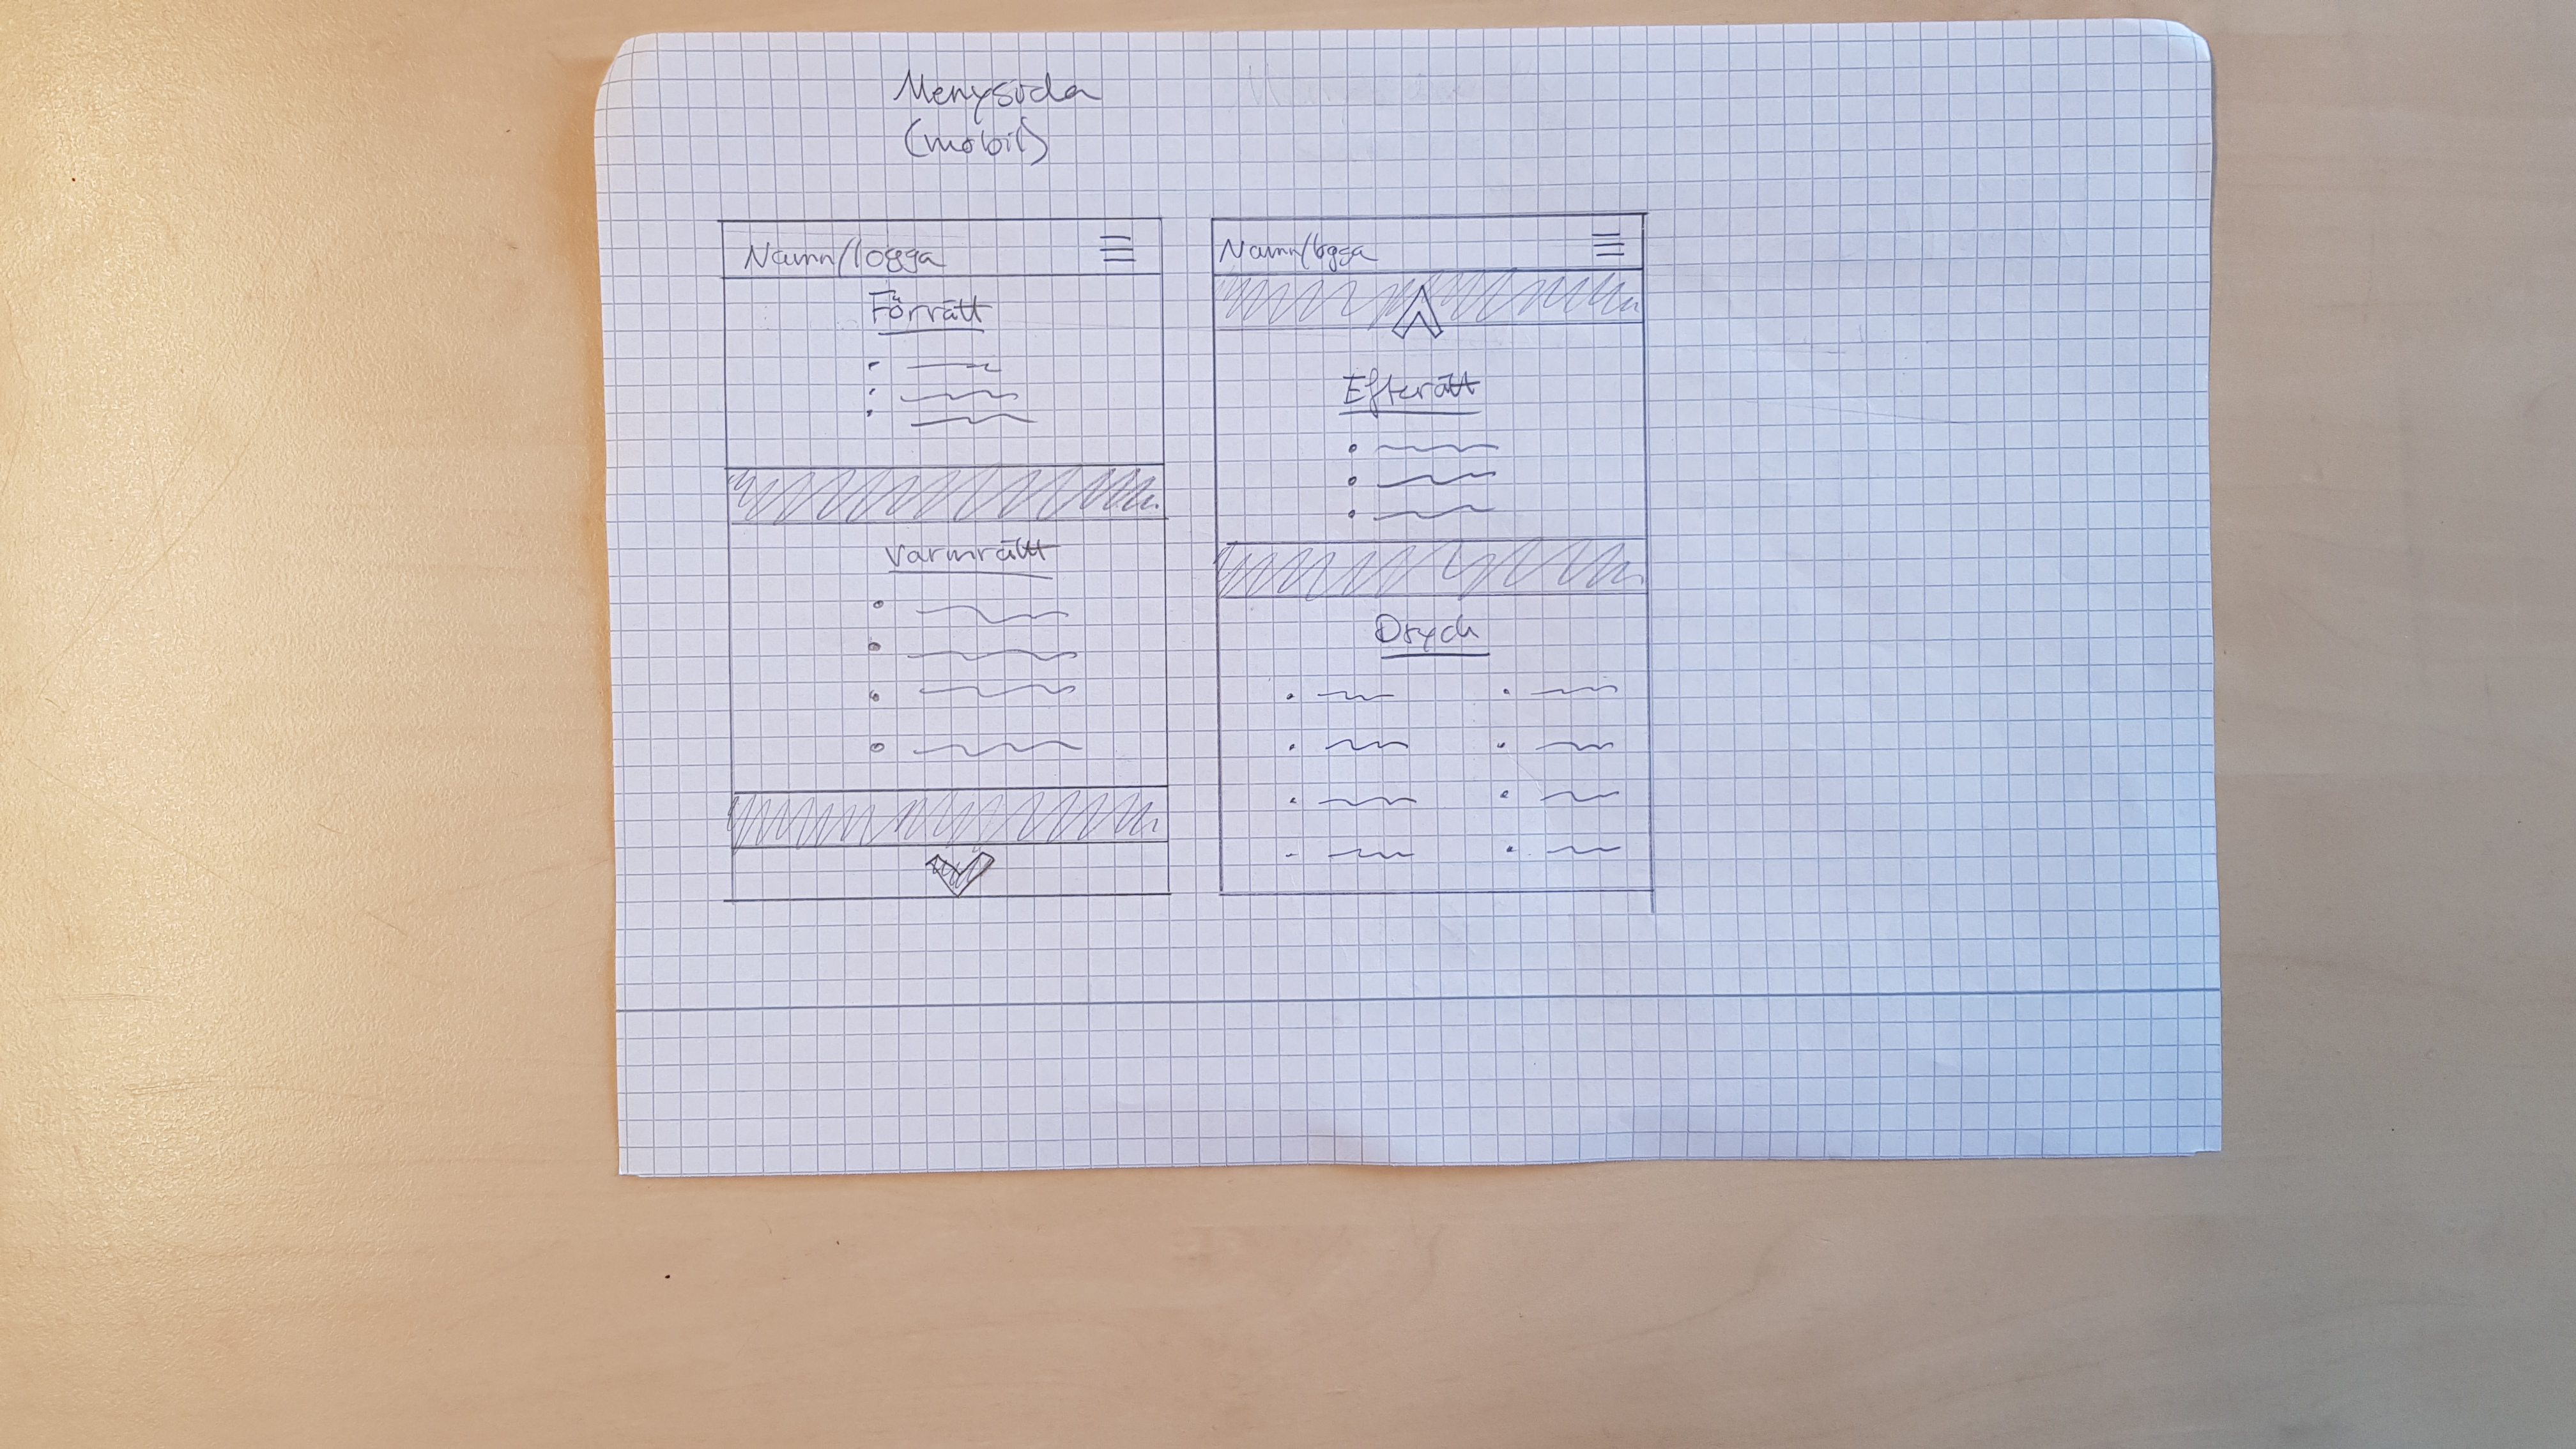 Menysida
(mobil)
Namn/logga
Förrätt
Varmrätt
Namn/logga
Efterrätt
Dryck